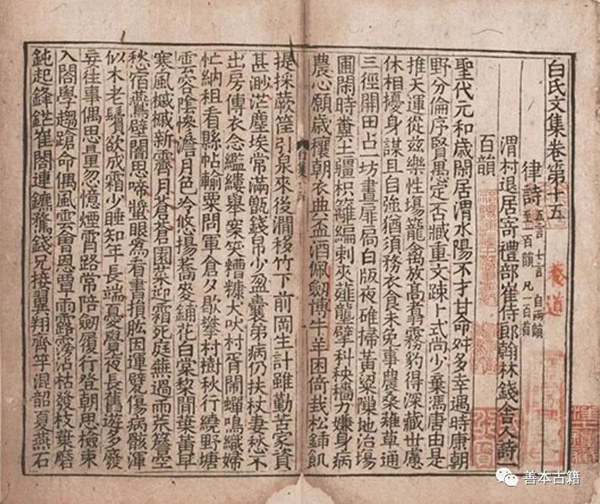 白氏文集卷第十五
律詩 五言 七言 自兩韻至一百韻 凡一百首
渭村退居寄禮部崔侍郎翰林錢舍人詩
百韻
聖代元和歲閑居渭水陽不才甘命舛多幸遇時康朝
野分倫序賢愚定否臧重文疎卜式尚少棄馮唐由是
推天運從兹樂性場籠禽放高翥霧豹得深藏世慮
休相擾身謀且自強猶須務衣食未免事農桑薙草通
三徑開田占一坊晝扉扃白版夜碓掃黃粱隙地治場
圃閑時糞土疆枳籬編刺夾薤壟擘科秧穡力嫌身病
農心願歲穰朝衣典盃酒佩劒博牛羊困倚栽松鍤飢
提採蕨筐引泉來後澗移竹下前岡生計雖勤苦家資
甚渺茫塵埃常滿甑錢帛少盈囊弟病仍扶杖妻愁不
出房傳衣念繿縷舉案笑糟糠犬吠村胥鬧蟬鳴織婦
忙納租看縣帖輸粟問軍倉夕歇攀村樹秋行繞野塘
雲容陰慘澹月色冷悠揚蕎麥鋪花白棠梨間葉黃早
寒風摵摵新霽月蒼蒼園菜迎霜死庭蕪過雨荒簷空
愁宿鷰壁闇思啼螿眼爲看書損肱因運甓傷病骸渾
似木老鬢欲成霜少睡知年長端憂覺夜長舊遊多廢
忘往事偶思量忽憶煙霄路常陪劒履行登朝思檢束
入閤學趨蹌命偶風雲會恩覃雨露霶沾枯發枝葉磨
鈍起鋒鋩崔閤連鑣騖錢兄接翼翔齊竽混韶夏燕石
善本古籍